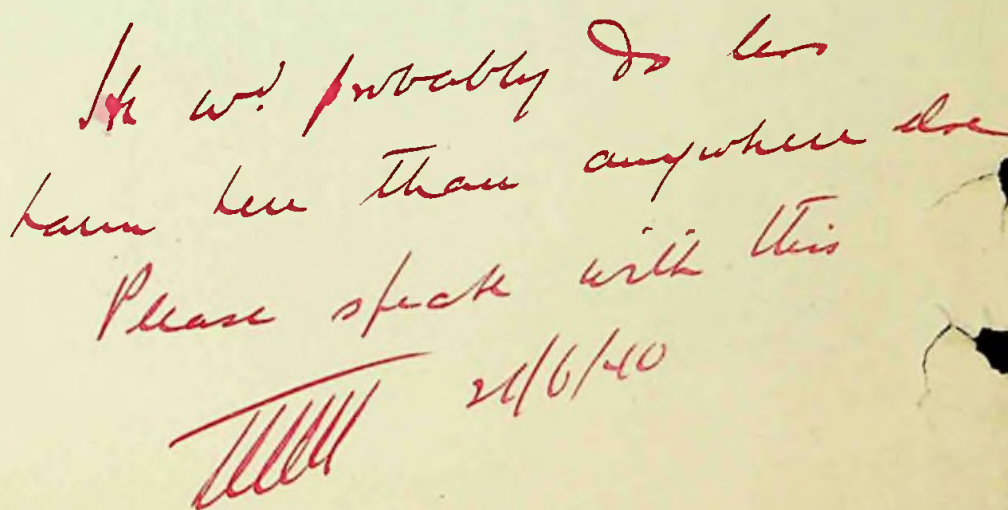 He wd probably do less
harm here than anywhere else
Please speak with this
21/6/40